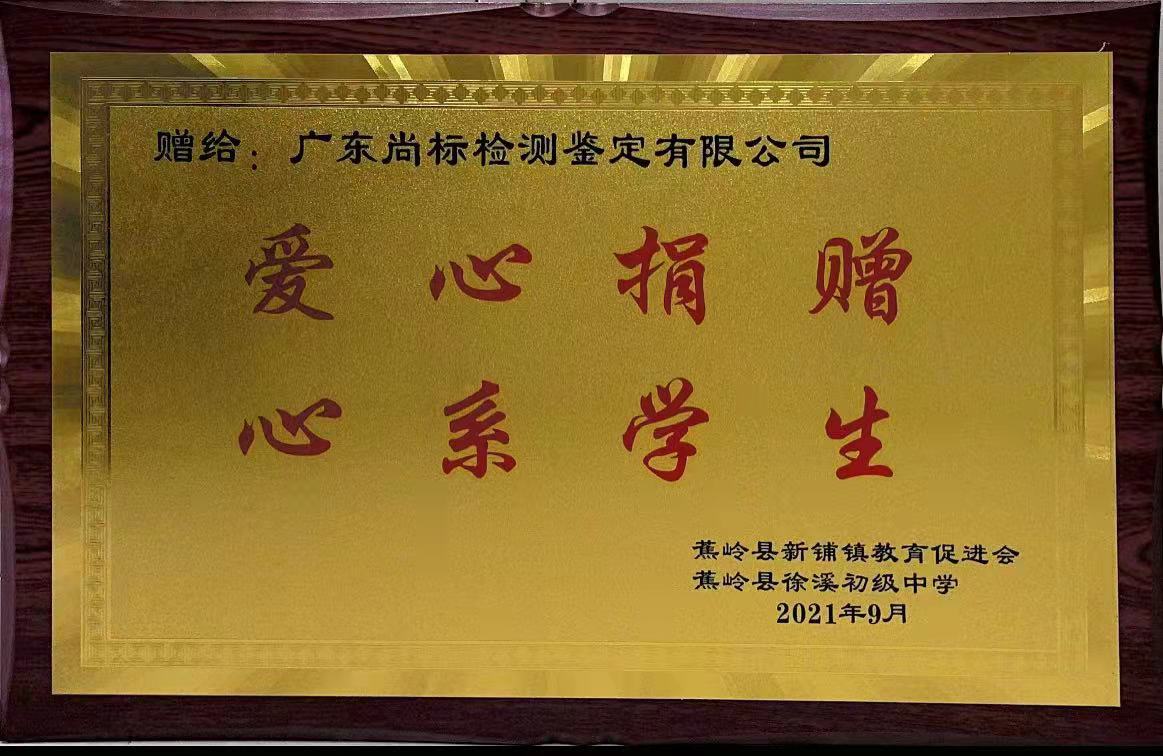 赠给：广东尚标检测鉴定有限公司
爱心捐赠
心系学生
蕉岭县新铺镇教育促进会
蕉岭县徐溪初级中学
2021年9月